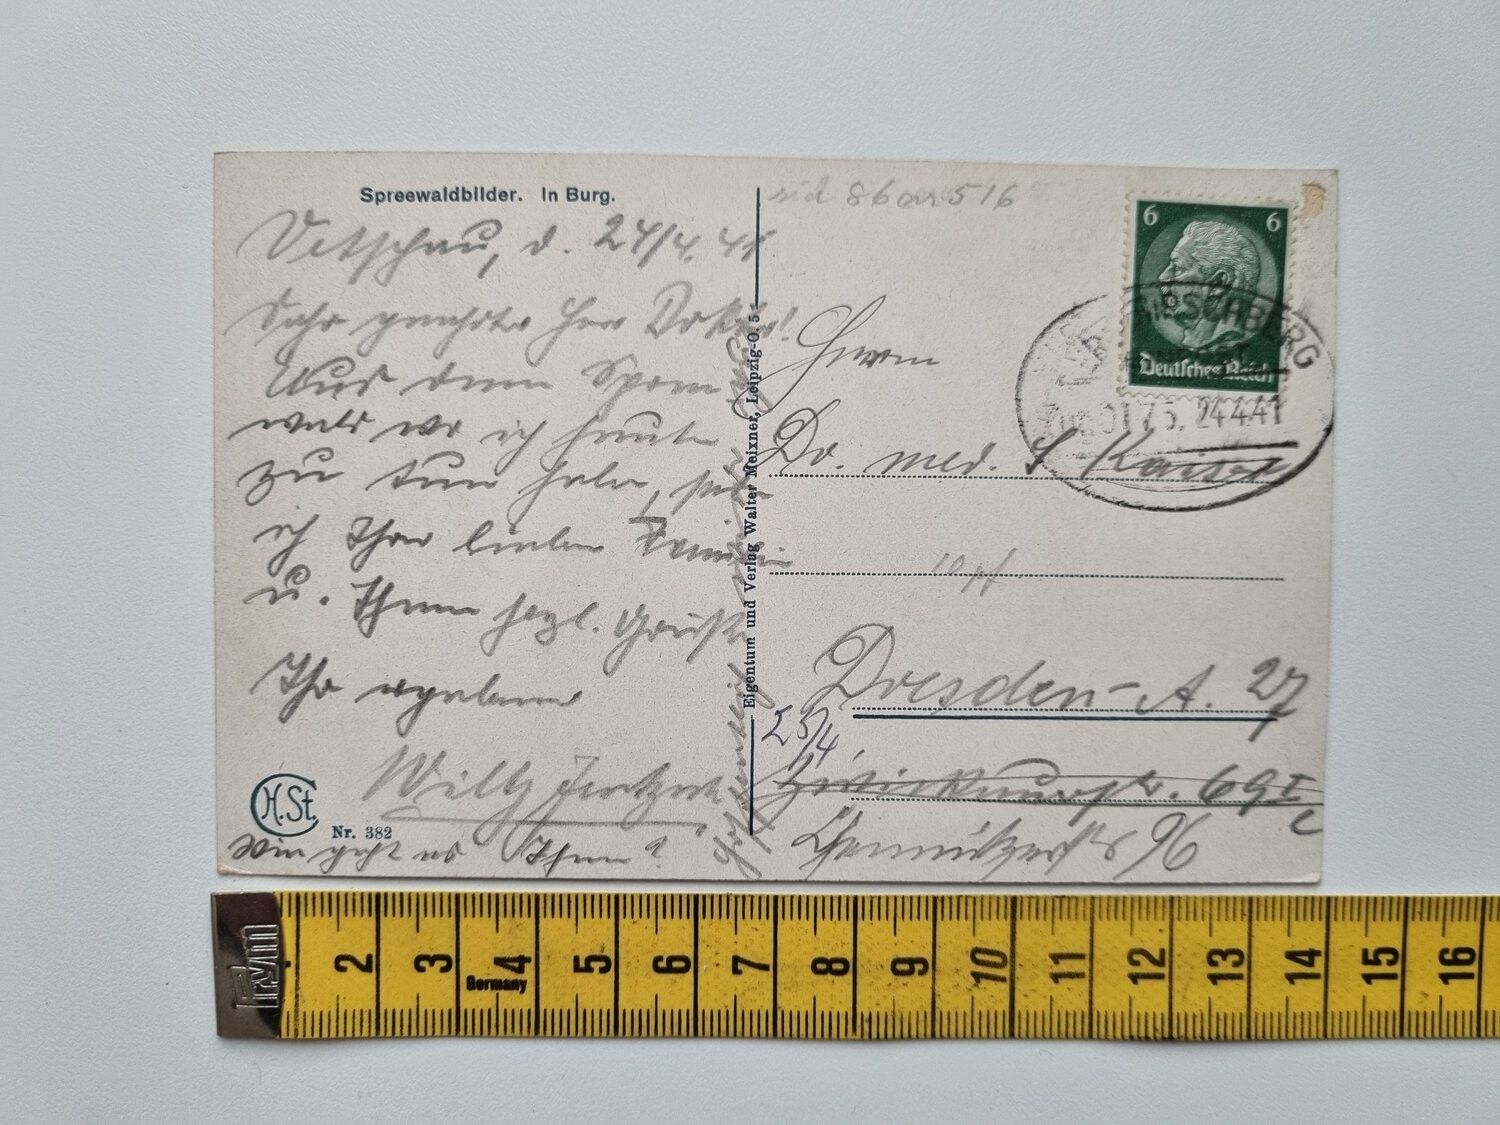 Spreewaldbilder. In Burg.
Vetschau, d. 24/4. 41.
Sehr geehrter Herr Doktor!
Aus dem Spree
wald wo ich heute
zu tun habe, sende
ich Ihrer lieben Familie
u. Ihnen herzl. Grüße
Ihr ergebener
Willy
Wie geht es Ihnen?
Hoffentlich
H.St.
Nr. 382
Eigentum und Verlag Walter Meixner, Leipzig-O. 5
86 516
6 6
Deutsches Reich
HIRSCHBERG
Zug 0175. 24.4.41
Herrn
Dr. med. Kaiser
10 pf
Dresden-A. 27
25/4
Zwickauerstr. 69 I
Chemnitzerstr 96
prym
2 3 4 5 6 7 8 9 10 11 12 13 14 15 16
Germany